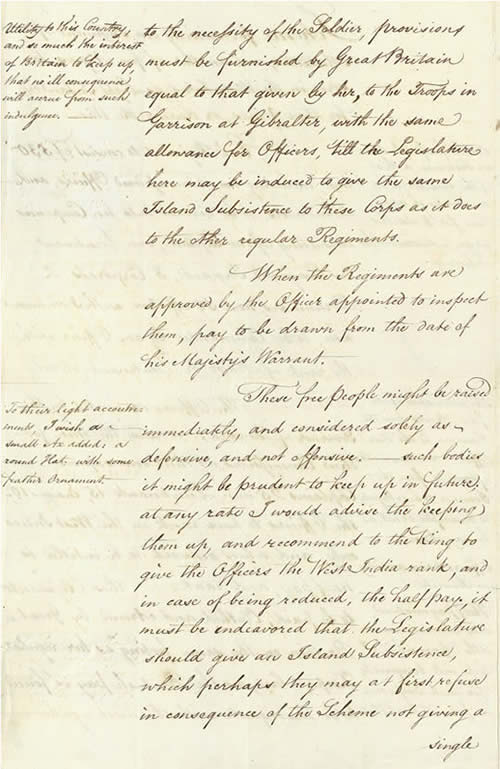 Utility to this Country,
and so much the interest
of Britain to keep up,
that no ill consequence
will accrue from such
indulgence. —
to the necessity of the Soldier, provisions
must be furnished by Great Britain
equal to that given by her, to the Troops in
Garrison at Gibralter, with the same
allowance for Officers, till the Legislature
here may be induced to give the same
Island Subsistence to these Corps as it does
to the other regular Regiments.
When the Regiments are
approved by the Officer appointed to inspect
them, pay to be drawn from the date of
his Majesty's Warrant. —
To their light accoutre-
ments, I wish a
small Ax added; a
round Hat, with some
feather Ornament.
These free People might be raised
immediately, and considered solely as
defensive, and not offensive. — such bodies
it might be prudent to keep up in future;
at any rate I would advise the keeping
them up, and recommend to the King to
give the Officers the West India rank, and
in case of being reduced, the half pay, it
must be endeavored that the Legislature
should give an Island Subsistence,
which perhaps they may at first refuse
in consequence of the Scheme not giving a
single